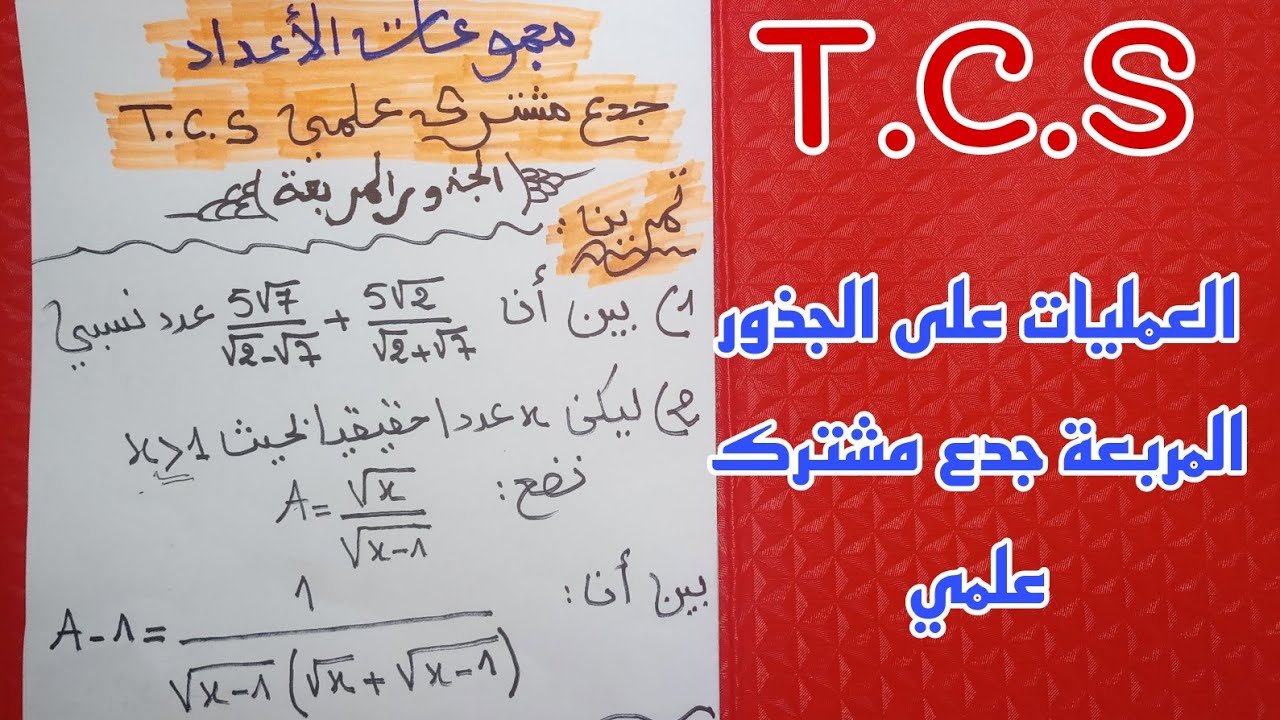 مجموعات الأعداد
جدع مشترك علمي T.C.S
الجذور المربعة
تمرين :
1) بين أن 5√7/(√2-√7) + 5√2/(√2+√7) عدد نسبي
2) ليكن x عددا حقيقيا بحيث x>1
نضع : A = √x/√(x-1)
بين أن :
A-1 = 1/(√(x-1)(√x+√(x-1)))
T.C.S
العمليات على الجذور
المربعة جدع مشترك
علمي